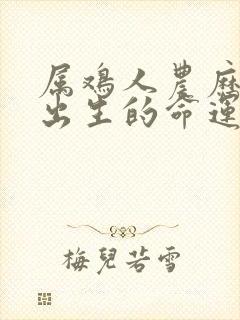 属鸡人農历
出生的命運
梅兒若雪